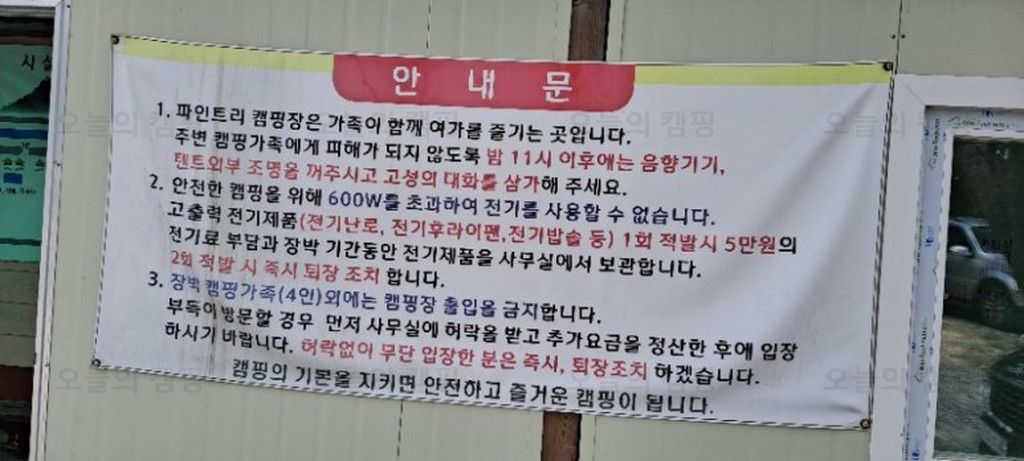 안 내 문
1. 파인트리 캠핑장은 가족이 함께 여가를 즐기는 곳입니다.
주변 캠핑가족에게 피해가 되지 않도록 밤 11시 이후에는 음향기기,
텐트외부 조명을 꺼주시고 고성의 대화를 삼가해 주세요.
2. 안전한 캠핑을 위해 600W를 초과하여 전기를 사용할 수 없습니다.
고출력 전기제품(전기난로, 전기후라이팬,전기밥솥 등) 1회 적발시 5만원의
전기료 부담과 장박 기간동안 전기제품을 사무실에서 보관합니다.
2회 적발 시 즉시 퇴장 조치 합니다.
3. 장박 캠핑가족(4인)외에는 캠핑장 출입을 금지합니다.
부득이 방문할 경우 먼저 사무실에 허락을 받고 추가요금을 정산한 후에 입장
하시기 바랍니다. 허락없이 무단 입장한 분은 즉시, 퇴장조치 하겠습니다.
캠핑의 기본을 지키면 안전하고 즐거운 캠핑이 됩니다.
시설
오늘의 캠핑
오늘의 캠핑
오늘의 캠핑
오늘의 캠핑
오늘의 캠핑
오늘의 캠핑